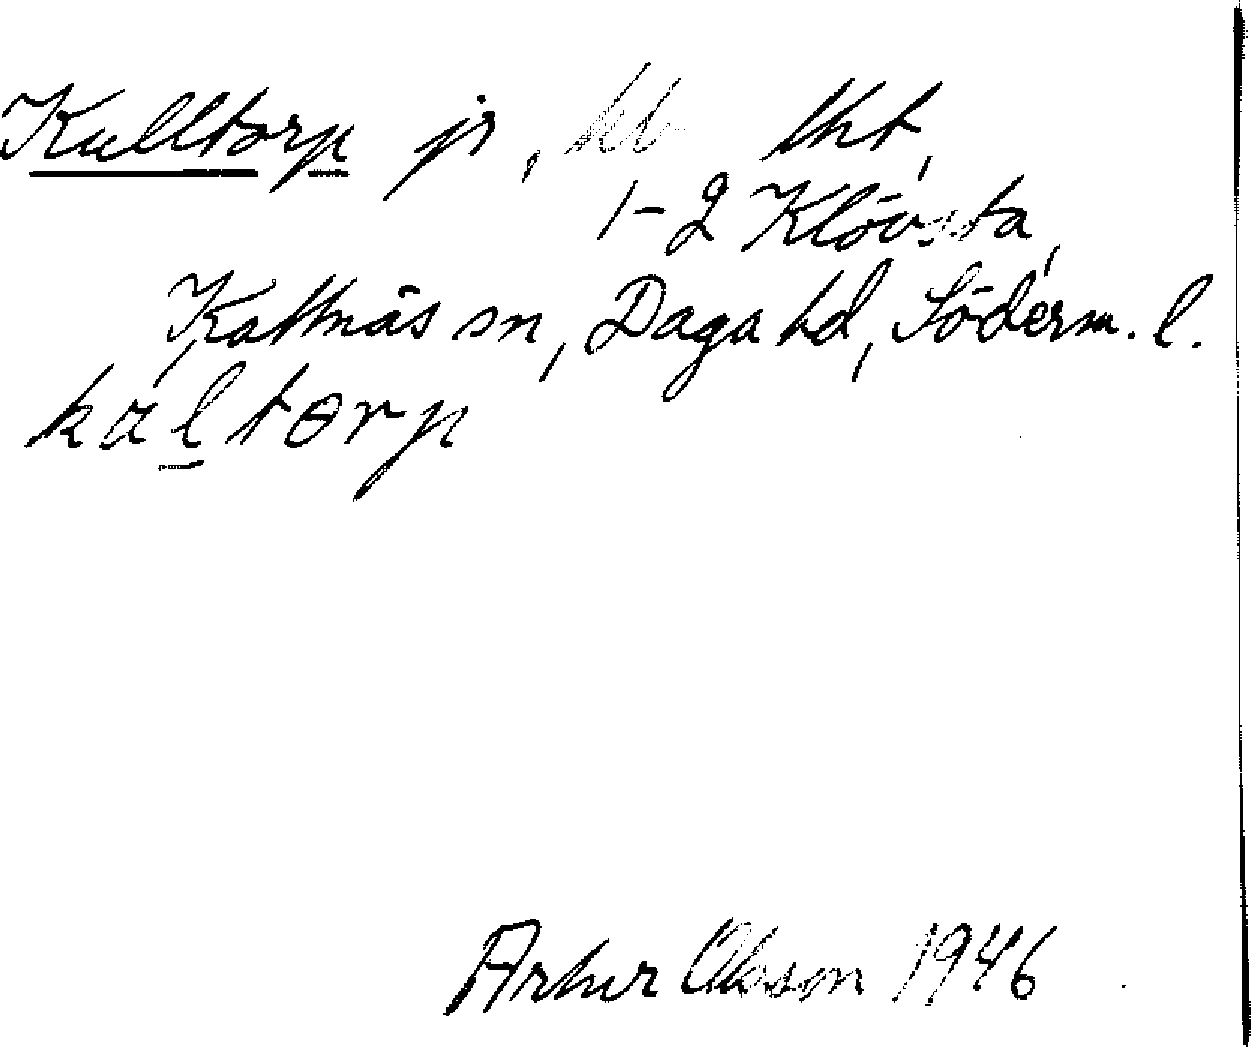 Kulltorp jr, kb lht,
1-2 Klövsta,
Kattnäs sn, Daga hd, Söderm. l.
kal torp
Artur Olsson 1946